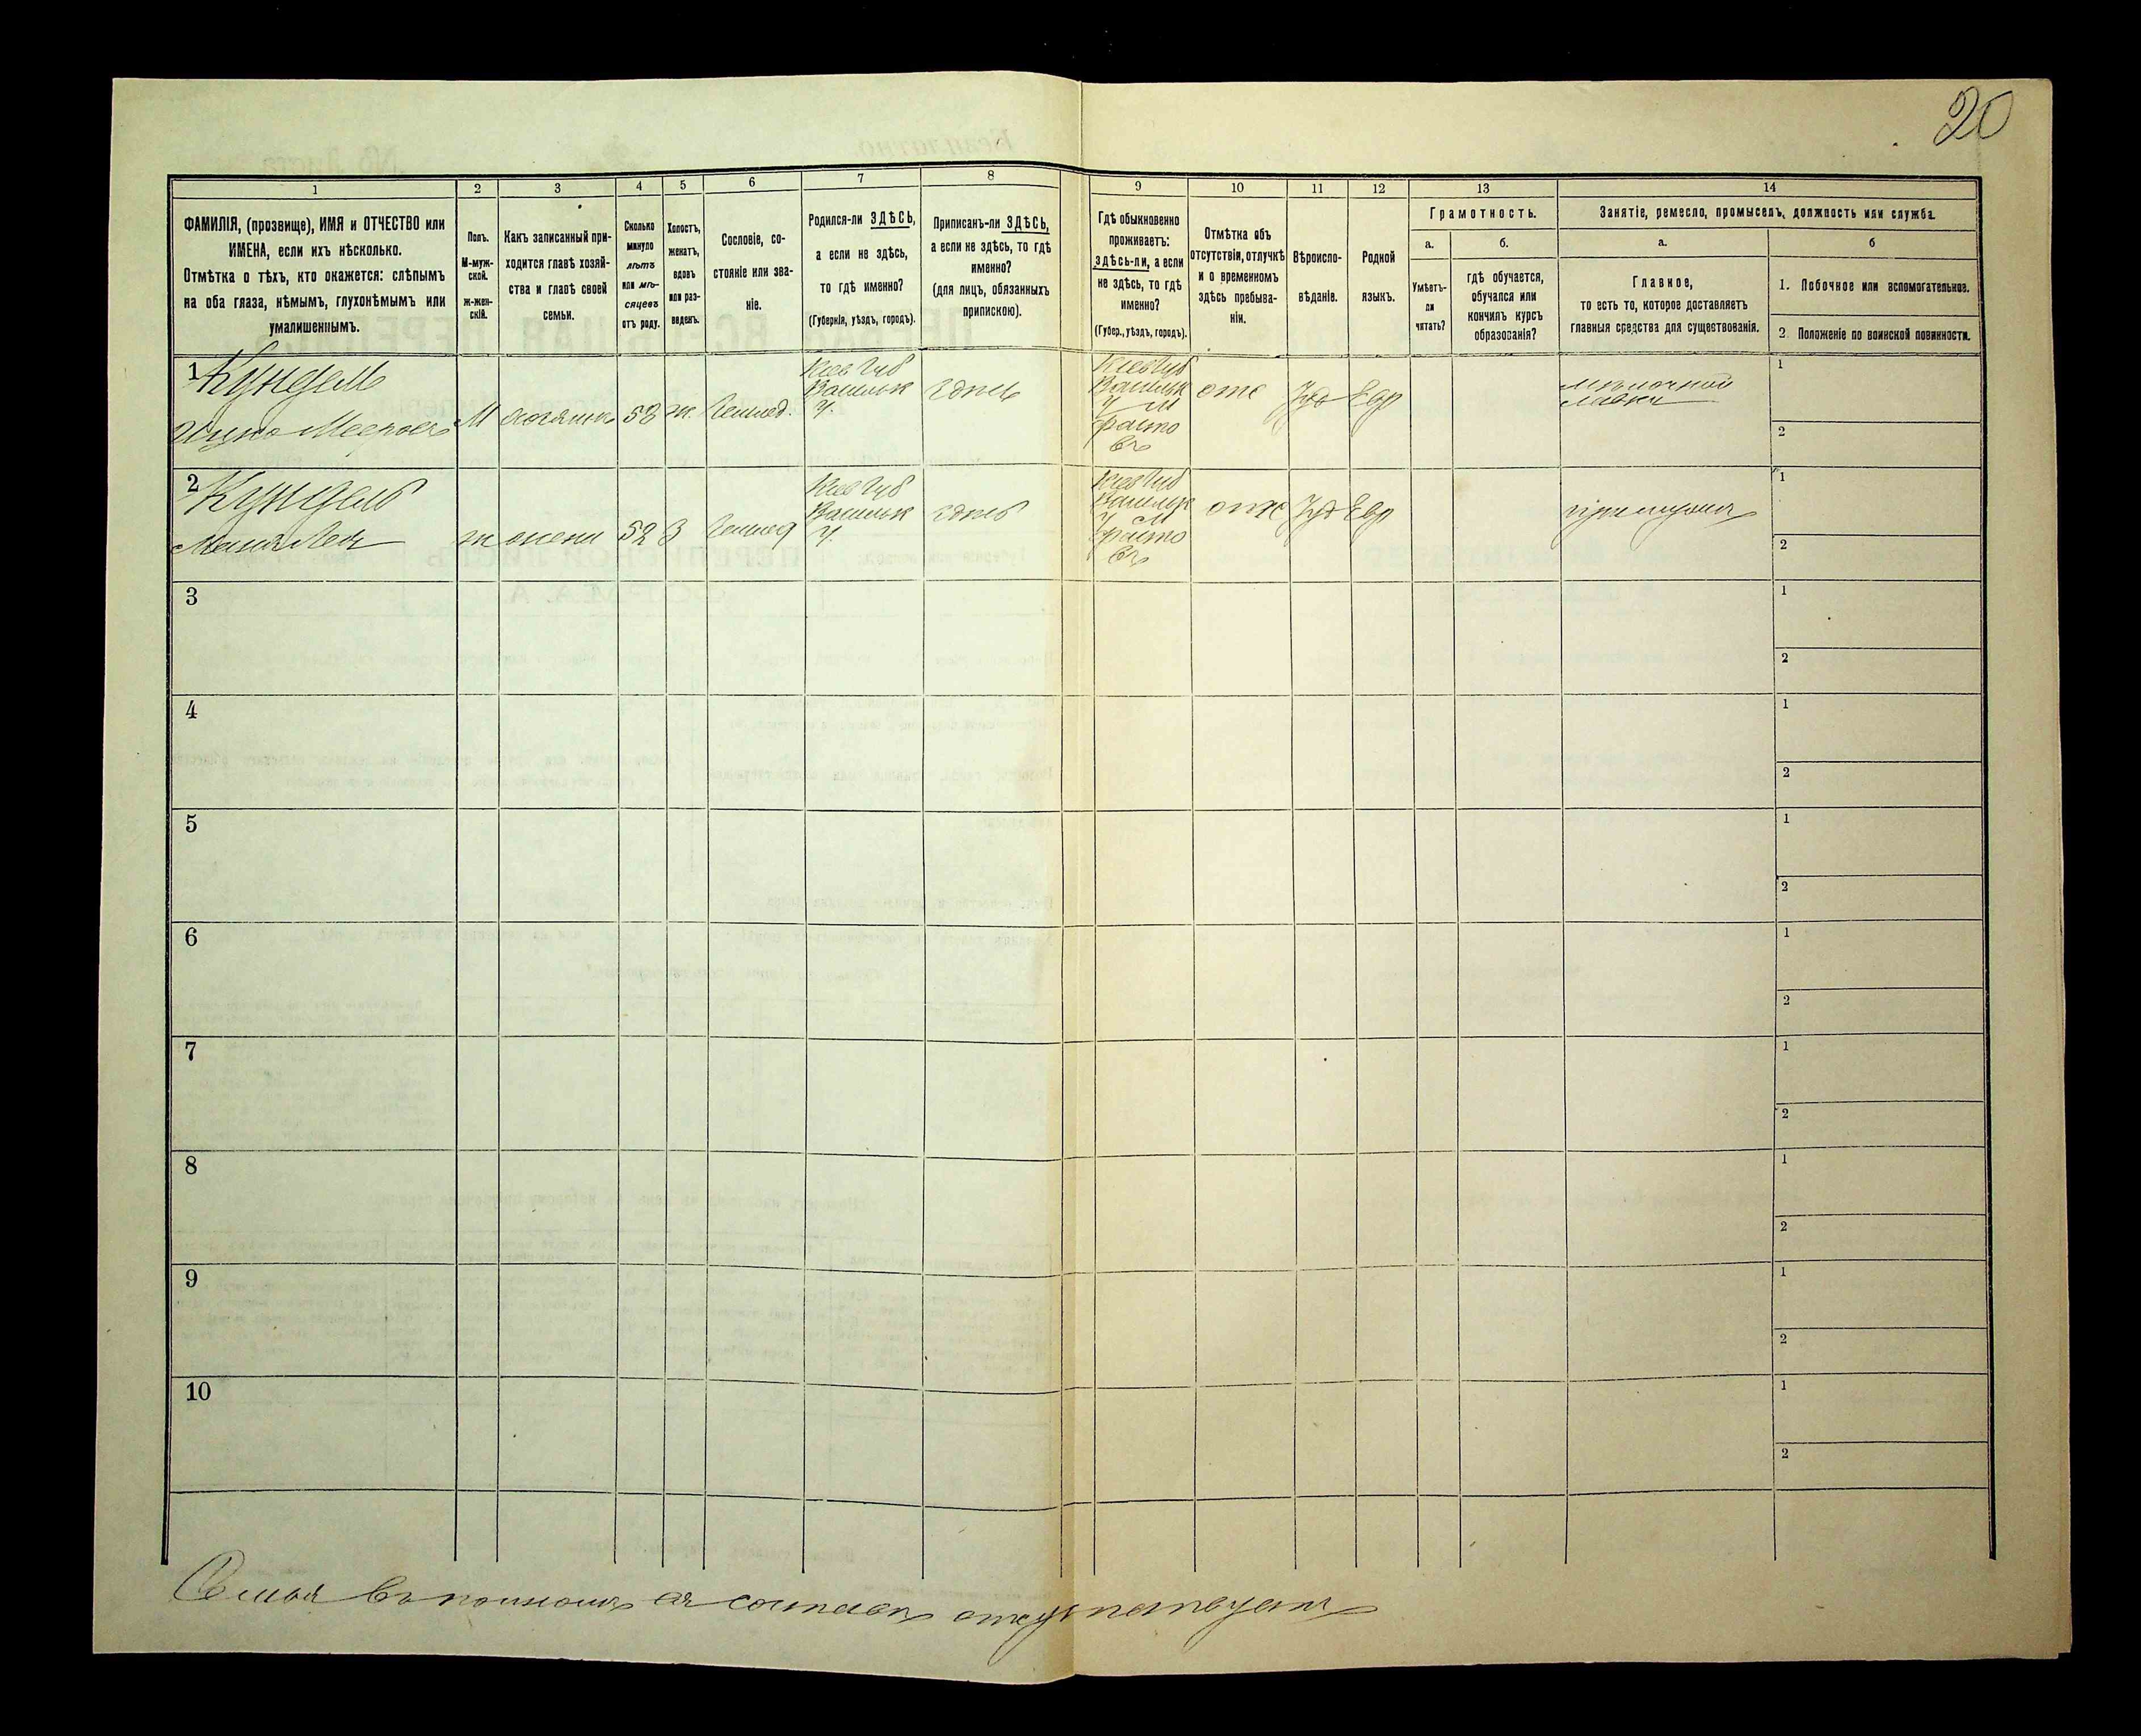 20
1 2 3 4 5 6 7 8 9 10 11 12 13 14
ФАМИЛІЯ, (прозвище), ИМЯ и ОТЧЕСТВО или
ИМЕНА, если ихъ нѣсколько.
Отмѣтка о тѣхъ, кто окажется: слѣпымъ
на оба глаза, нѣмымъ, глухонѣмымъ или
умалишеннымъ.
Полъ.
М-муж-
ской.
ж-жен-
скій.
Какъ записанный при-
ходится главѣ хозяй-
ства и главѣ своей
семьи.
Сколько
минуло
лѣтъ
или мѣ-
сяцевъ
отъ роду.
Холостъ,
женатъ,
вдовъ
или раз-
веденъ.
Сословіе, со-
стояніе или зва-
ніе.
Родился-ли ЗДѢСЬ,
а если не здѣсь,
то гдѣ именно?
(Губернія, уѣздъ, городъ).
Приписанъ-ли ЗДѢСЬ,
а если не здѣсь, то гдѣ
именно?
(для лицъ, обязанныхъ
припискою).
Гдѣ обыкновенно
проживаетъ:
здѣсь-ли, а если
не здѣсь, то гдѣ
именно?
(Губер., уѣздъ, городъ).
Отмѣтка объ
отсутствіи, отлучкѣ
и о временномъ
здѣсь пребыва-
ніи.
Вѣроиспо-
вѣданіе.
Родной
языкъ.
Грамотность.
а.
Умѣетъ-
ли
читать?
б.
гдѣ обучается,
обучался или
кончилъ курсъ
образованія?
Занятіе, ремесло, промыселъ, должность или служба.
а.
Главное,
то есть то, которое доставляетъ
главныя средства для существованія.
б
1. Побочное или вспомогательное.
2. Положеніе по воинской повинности.
1
Кундель
Ицко Мееровъ
М
хозяинъ
52
ж.
Кіев Губ
Васильк
У.
здѣсь
Кіев Губ
Васильк
У М
Фасто
въ
отс
Іуд
Евр
мѣлочная
лавка
1
2
2
Кундель
ж
жена
52
З
Кіев Губ
Васильк
У.
здѣсь
Кіев Губ
Васильк
У М
Фасто
въ
отс
Іуд
Евр
при мужѣ
1
2
3
1
2
4
1
2
5
1
2
6
1
2
7
1
2
8
1
2
9
1
2
10
1
2
Семья въ полномъ ея составѣ отсутствуетъ